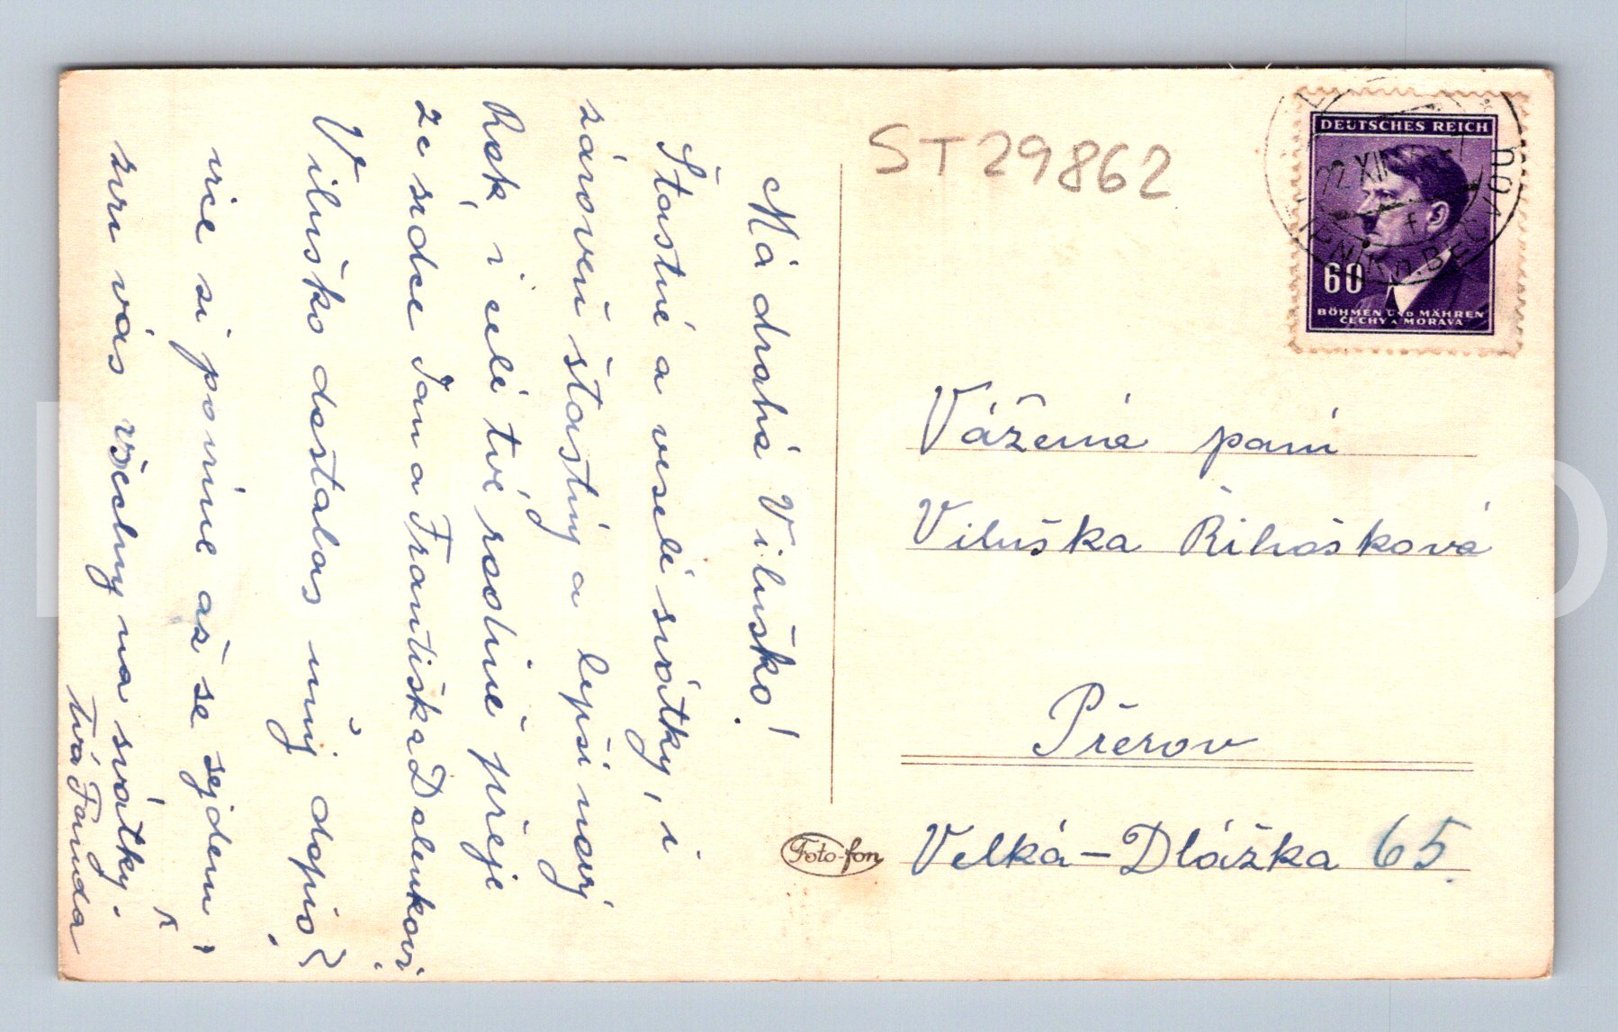 Má drahá Viluško!
Šťastné a veselé svátky, i
zároveň šťastný a lepší nový
Rok, i celé tvé rodině přeje
ze srdce Jan a Františka Delenkovi.
Viluško dostalas můj dopis?
více si povíme až se sejdem,
zvu vás všechny na svátky.
tvá Fanda
ST29862
DEUTSCHES REICH
22 XII
60
BÖHMEN UND MÄHREN
ČECHY A MORAVA
Vážená paní
Viluška Řihošková
Přerov
Velká-Dlážka 65.
Foto-fon